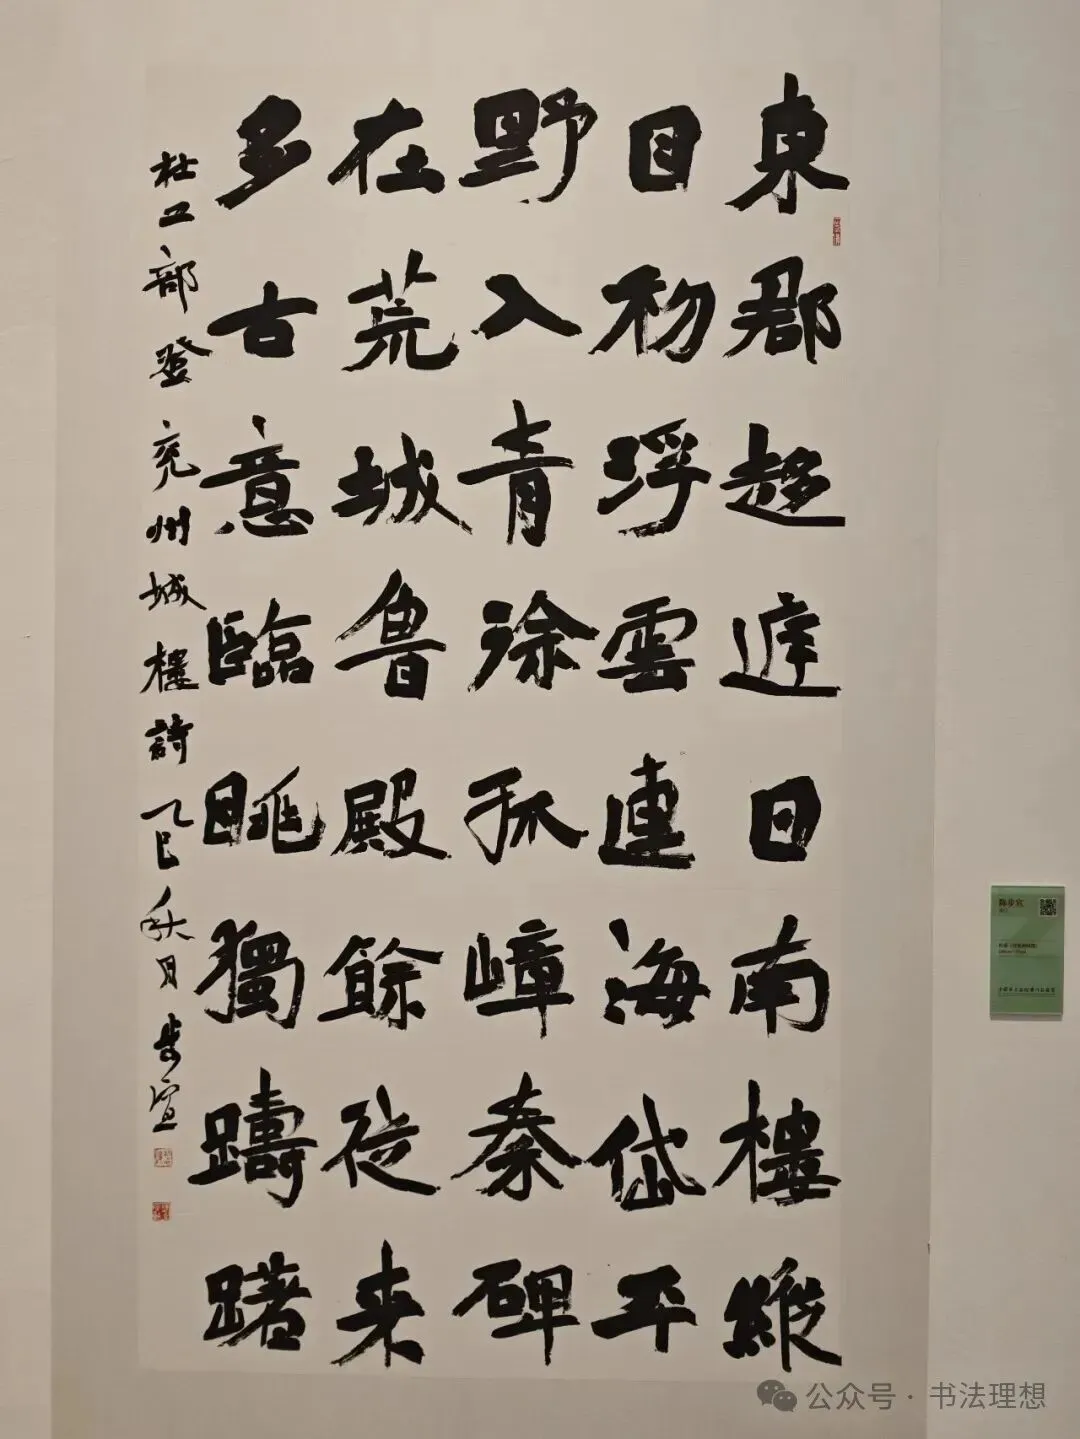 東郡趍庭日南樓縱
目初浮雲連海岱平
野入青徐孤嶂秦碑
在荒城魯殿餘從来
多古意臨眺獨躊躇
杜工部登兗州城樓詩 乙巳秋月 步宣
公众号 · 书法理想